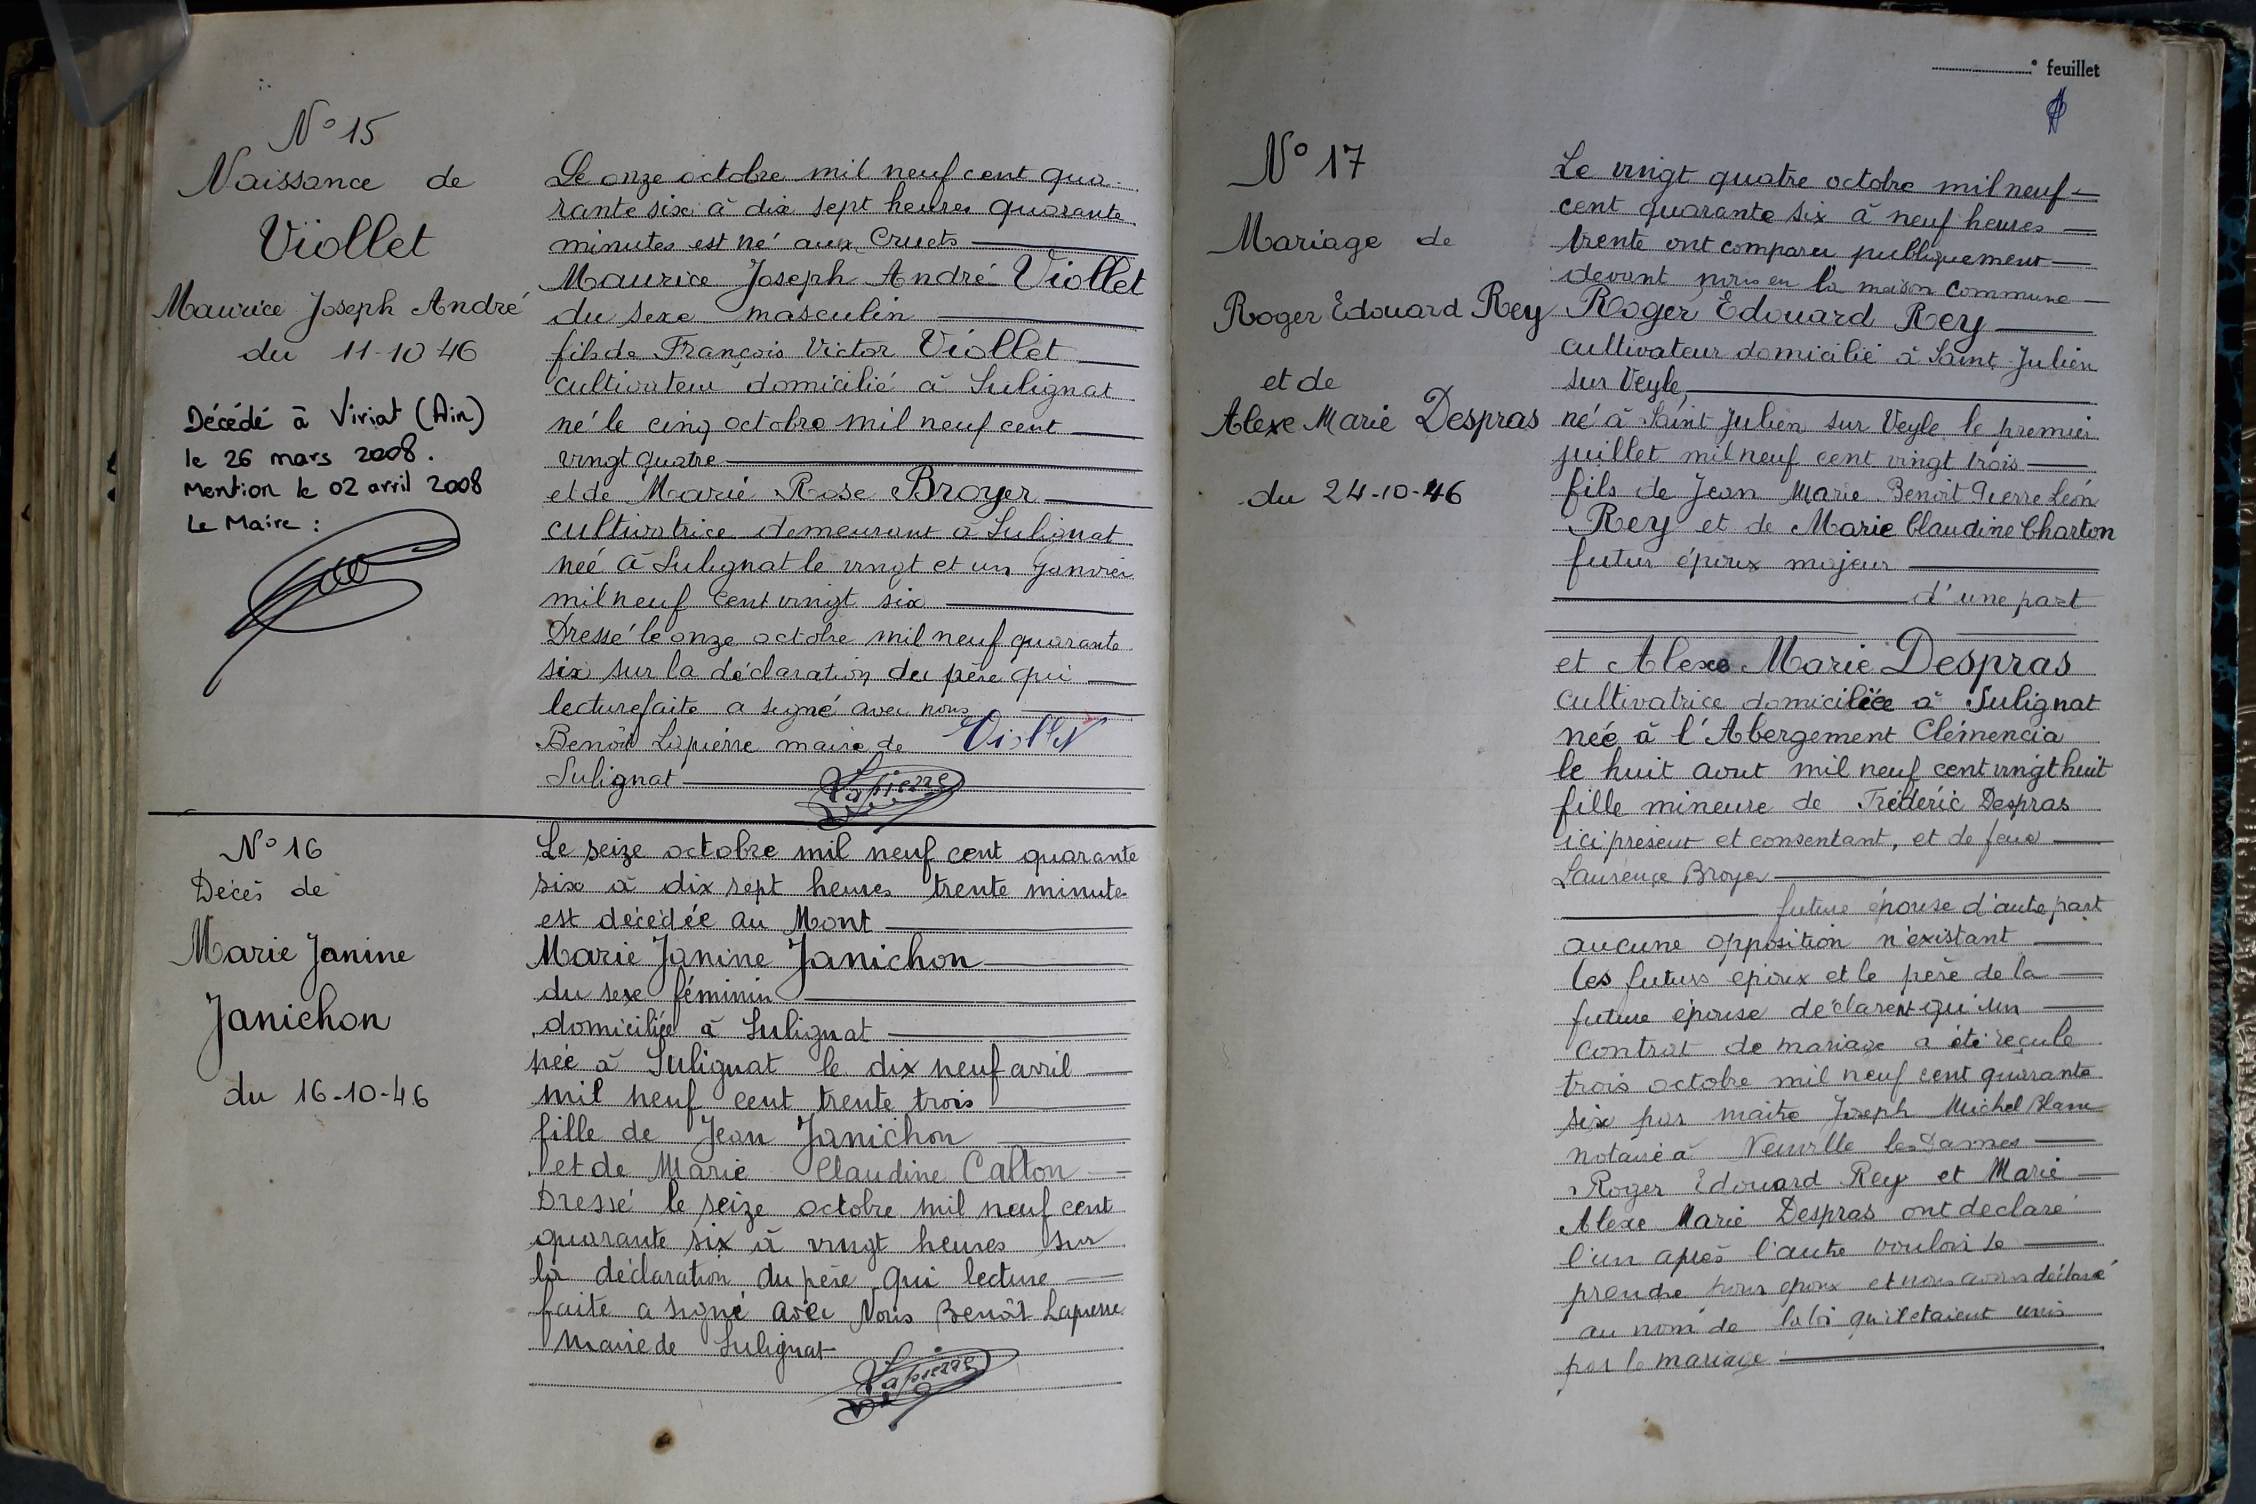 N° 15
Naissance de
Viollet
Maurice Joseph André
du 11-10 46
Décédé à Viriat (Ain)
le 26 mars 2008.
Mention le 02 avril 2008
Le Maire :
Le onze octobre mil neuf cent qua-
rante six à dix sept heures quarante
minutes est né aux Cruets
Maurice Joseph André Viollet
du sexe masculin
fils de François Victor Viollet
cultivateur domicilié à Sulignat
né le cinq octobre mil neuf cent
vingt quatre
et de Marie Rose Broyer
cultivatrice demeurant à Sulignat
née à Sulignat le vingt et un janvier
mil neuf cent vingt six
Dressé le onze octobre mil neuf quarante
six sur la déclaration du père qui
lecture faite a signé avec nous
Benoît Lapierre maire de Viollet
Sulignat Lapierre
N° 16
Décès de
Marie Janine
Janichon
du 16-10-46
Le seize octobre mil neuf cent quarante
six à dix sept heures trente minute
est décédée au Mont
Marie Janine Janichon
du sexe féminin
domiciliée à Sulignat
née à Sulignat le dix neuf avril
mil neuf cent trente trois
fille de Jean Janichon
et de Marie Claudine Calton
Dressé le seize octobre mil neuf cent
quarante six à vingt heures sur
la déclaration du père qui lecture
faite a signé avec Nous Benoît Lapierre
Maire de Sulignat
Lapierre
° feuillet
N° 17
Mariage de
Roger Edouard Rey
et de
Alexe Marie Despras
du 24-10-46
Le vingt quatre octobre mil neuf
cent quarante six à neuf heures
trente ont comparu publiquement
devant nous en la maison commune
Roger Edouard Rey
cultivateur domicilié à Saint Julien
sur Veyle,
né à Saint Julien sur Veyle le premier
juillet mil neuf cent vingt trois
fils de Jean Marie Benoit Pierre Léon
Rey et de Marie Claudine Charton
futur époux majeur
d'une part
et Alexe Marie Despras
cultivatrice domiciliée à Sulignat
née à l'Abergement Clémencia
le huit aout mil neuf cent vingt huit
fille mineure de Frédéric Despras
ici présent et consentant, et de feue
Laurence Broyer
future épouse d'autre part
aucune opposition n'existant
les futurs époux et le père de la
future épouse déclarent qu'un
contrat de mariage a été reçu le
trois octobre mil neuf cent quarante
six par maitre Joseph Michel Blanc
notaire à Neuville les Dames
Roger Edouard Rey et Marie
Alexe Marie Despras ont déclaré
l'un après l'autre vouloir se
prendre pour époux et nous avons déclaré
au nom de la loi qu'il etaient unis
par le mariage